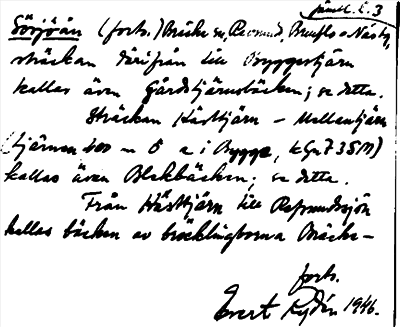 jämtl. l. 3
Sörjöån (forts.) Bräcke sn, Revsund, Brunflo o Näs,
sträckan därifrån till Byggestjärn
kallas även Gårdstjärnsbäcken; se detta.
Sträckan Hästtjärn – Mellantjärn
(tjärnen 400 m O a i Bygge, kGv 735M)
kallas även Blekbäcken; se detta.
Från Hästtjärn till Refsundssjön
kallas bäcken av bräcklingborna Bräcke-
forts.
Evert Rydén 1946.